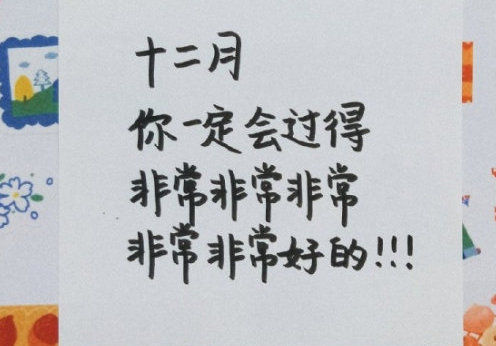 十二月
你一定会过得
非常非常非常
非常非常好的!!!